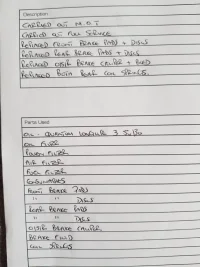 Description
CARRIED OUT M.O.T
CARRIED OUT FULL SERVICE
REPLACED FRONT BRAKE PADS + DISCS
REPLACED REAR BRAKE PADS + DISCS
REPLACED O/S/R BRAKE CALIPER + BLED
REPLACED BOTH REAR COIL SPRINGS.
Parts Used
OIL - QUANTUM LONGLIFE 3 5W30
OIL FILTER
POLLEN FILTER
AIR FILTER
FUEL FILTER
CONSUMABLES
FRONT BRAKE PADS
" " DISCS
REAR BRAKE PADS
" " DISCS
O/S/R BRAKE CALIPER
BRAKE FLUID
COIL SPRINGS